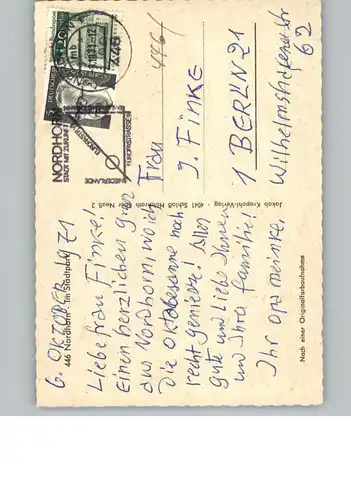 6. OKTOBER 71
446 Nordhorn im Stadtpark
Liebe Frau Finke!
Einen herzlichen Gruss
aus Nordhorn, wo ich
die Oktobersonne noch
recht geniesse! Alles
Gute und Liebe Ihnen
und Ihrer Familie!
Ihr
Nach einer Originalfarbaufnahme
Jakob Krapohl-Verlag 4041 Schloß
Neuß 2
NORDHORN
STADT MIT ZUKUNFT
EUROPASTRASSE
NIEDERLANDE
446/
Frau
J. FINKE
1 BERLIN 21
Wilhelmshavener Str
62